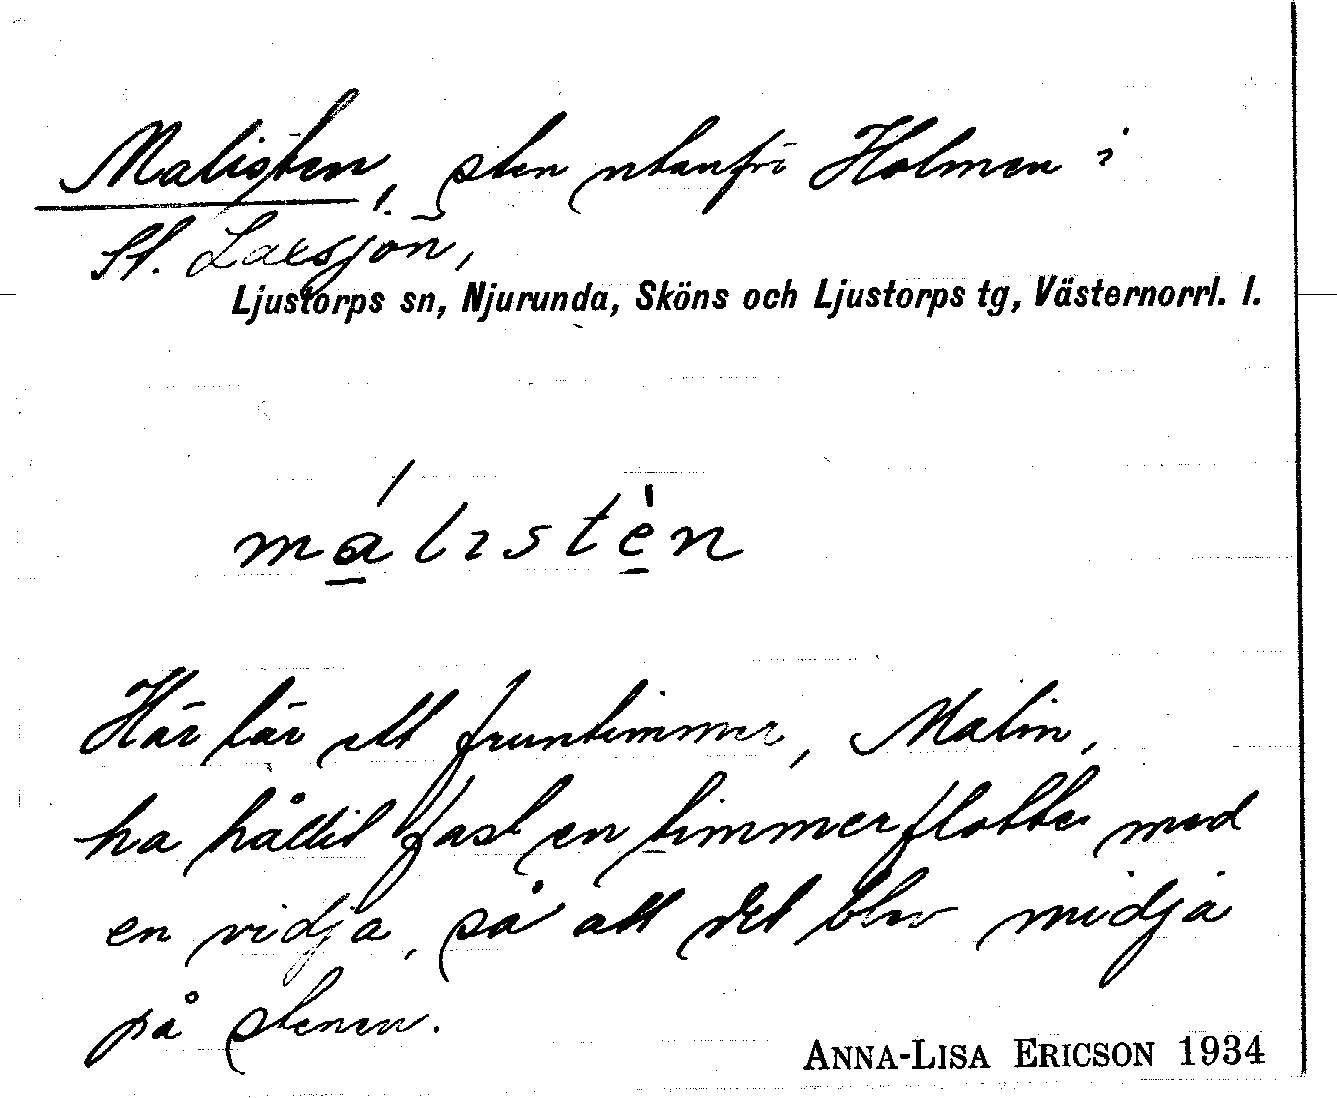 Malisten, sten utanför Holmen i
St. Laxsjön,
Ljustorps sn, Njurunda, Sköns och Ljustorps tg, Västernorrl. l.
má̱listè̱n
Här lär ett fruntimmer, Malin,
ha hållit fast en timmerflotte med
en vidja, så att det blev midja
på stenen.
ANNA-LISA ERICSON 1934